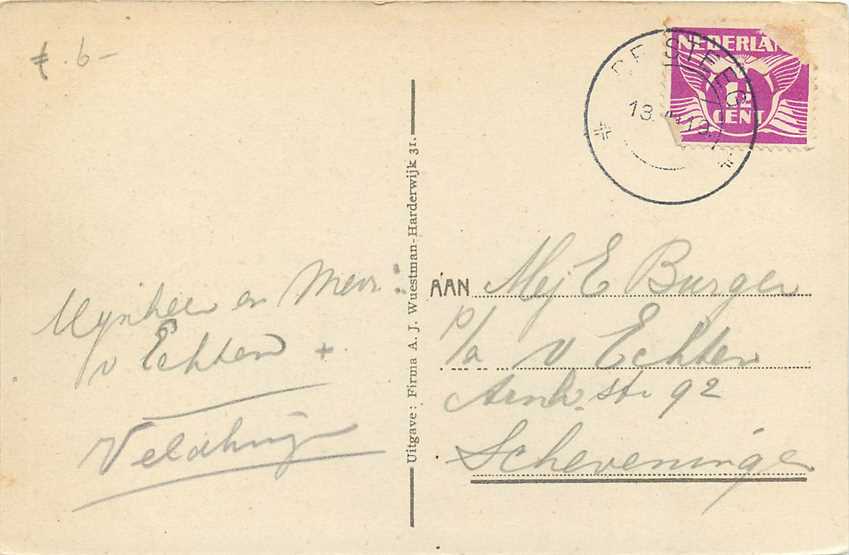 f. 6-
NEDERLAN
1½
CENT
DE STEEG
13.
Uitgave: Firma A. J. Wuestman-Harderwijk 31.
Mynheer en Mevr:
v Echten +
AAN Mej E Burger
p/a v Echten
Arnh. str 92
Scheveningen